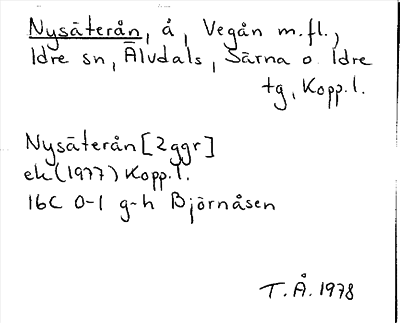 Nysäterån, å, Vegån m.fl.,
Idre sn, Älvdals, Särna o. Idre
tg, Kopp.l.
Nysäterån [2ggr]
ek (1977) Kopp.l.
16C 0-1 g-h Björnåsen
T.Å. 1978